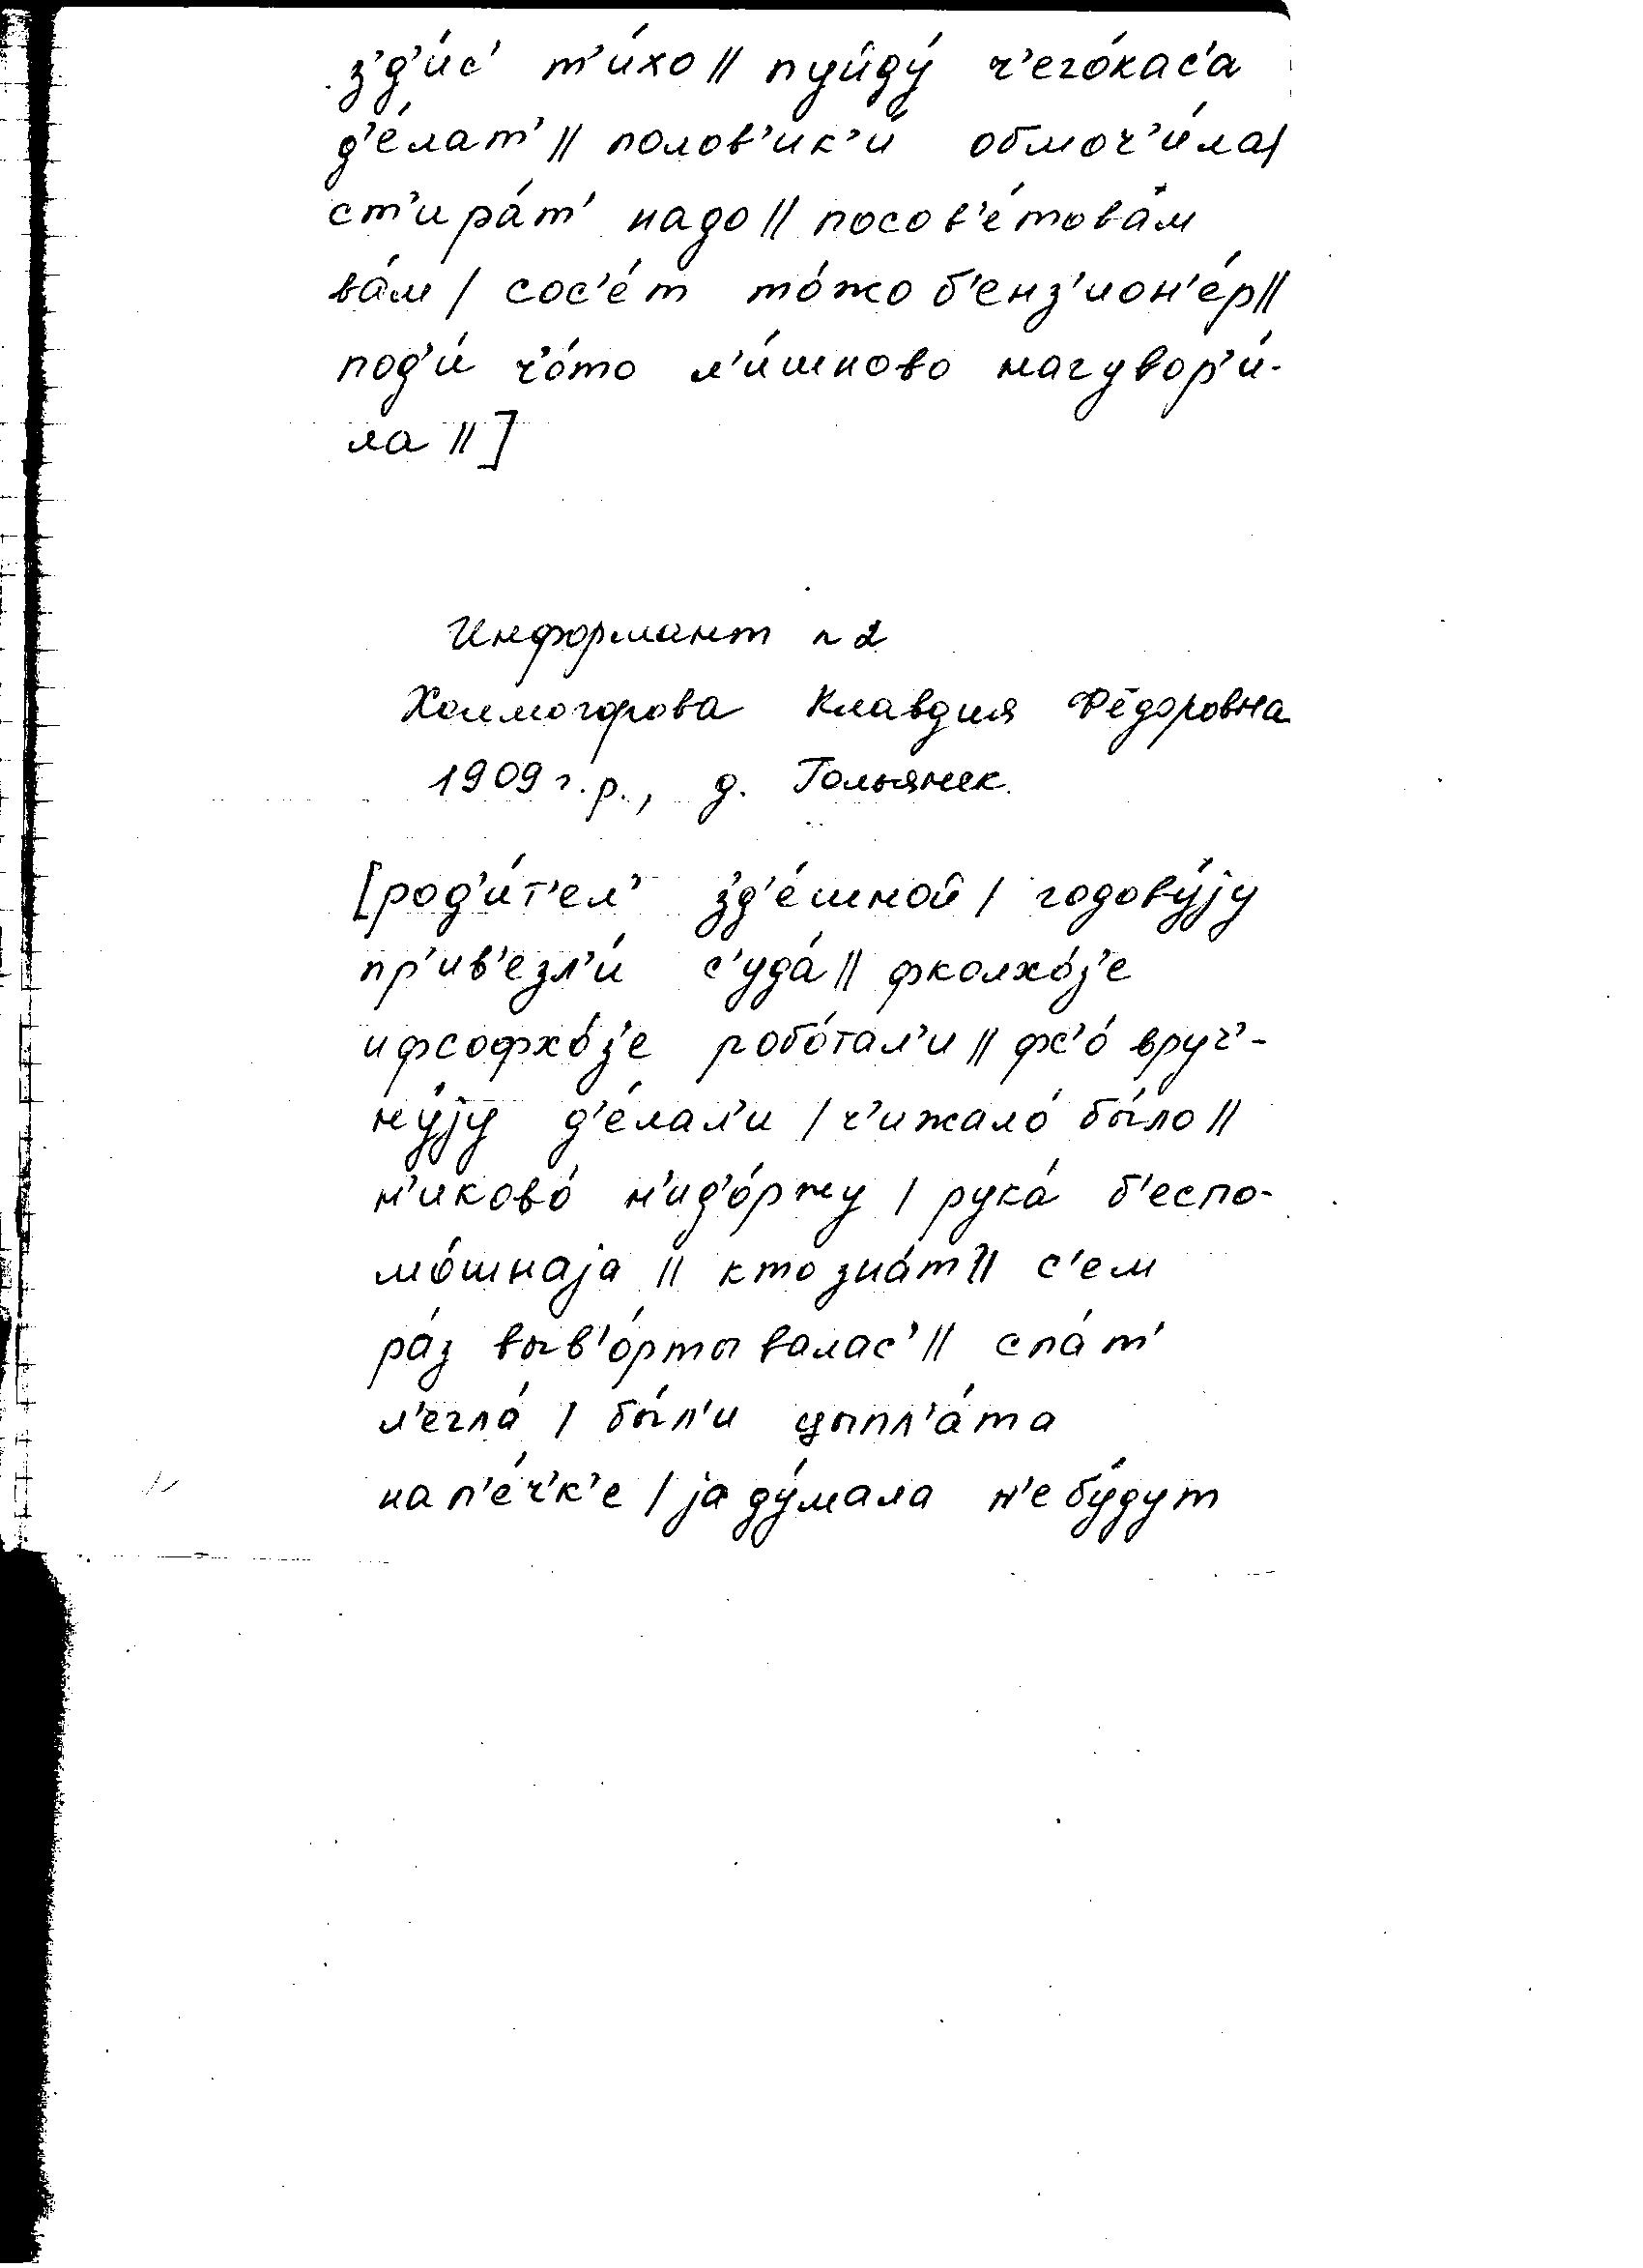 з'д'и́с' т'и́хо || пуйду́ ч'его́кас'а
д'е́лат' || полов'ик'и́ обмоч'и́ла |
ст'ира́т' надо || посов'е́това́м
ва́м | сос'е́т то́жо б'енз'ион'е́р ||
под'и́ ч'о́то л'и́шново нагувор'и́-
ла || ]
Информант n 2
Холмогорова Клавдия Фёдоровна
1909 г.р., д. Гольянск.
[род'и́т'ел' з'д'е́шной | годову́jу
пр'ив'езл'и́ с'уда́ || фколхо́з'е
ифсофхо́з'е робо́тал'и || фс'о́ вруч'-
ну́jу д'е́лал'и | ч'ижало́ бы́ло ||
н'иково́ н'ид'о́ржу | рука́ б'еспо-
мо́шнаjа || кто зна́т || с'ем
ра́з выв'о́ртывалас' || спа́т'
л'егла́ | бы́л'и цыпл'а́та
нап'е́ч'к'е | jа ду́мала н'е бу́дут